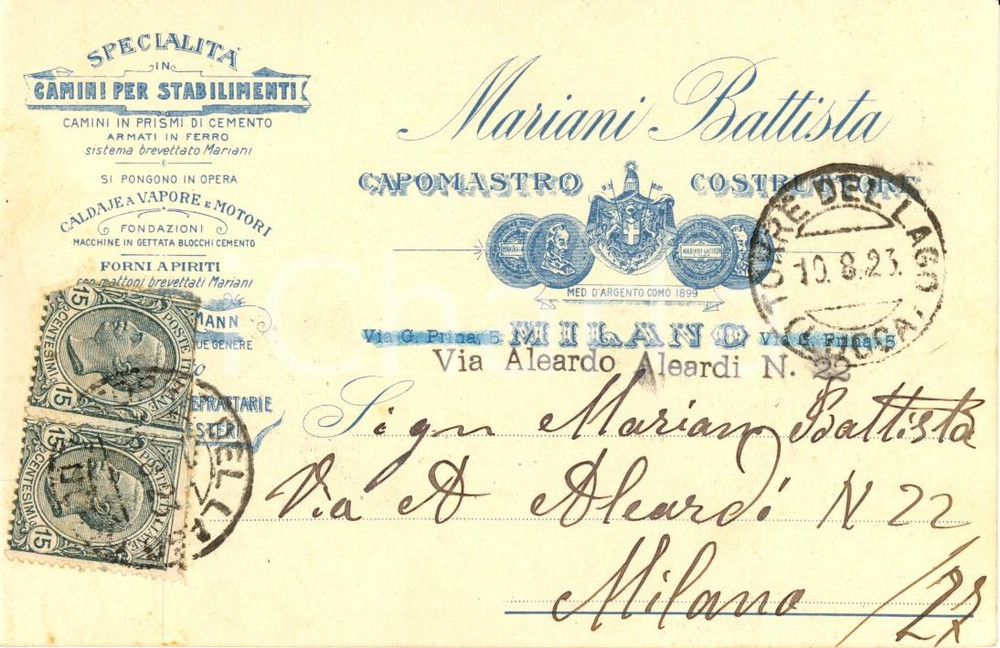 SPECIALITÀ
IN
CAMINI PER STABILIMENTI
CAMINI IN PRISMI DI CEMENTO
ARMATI IN FERRO
sistema brevettato Mariani
SI PONGONO IN OPERA
CALDAJE A VAPORE E MOTORI
FONDAZIONI
MACCHINE IN GETTATA BLOCCHI CEMENTO
FORNI A PIRITI
mattoni brevettati Mariani
MANN
QUE GENERE
REFRATTARIE
ESTERI
Mariani Battista
CAPOMASTRO COSTRUTTORE
MED. D'ARGENTO COMO 1899
Via G. Prina 5 MILANO Via G. Prina 5
Via Aleardo Aleardi N. 22
TORRE DEL LAGO
10.8.23.
(LUCCA)
15 POSTE ITALIANE
CENTESIMI 15
15 POSTE ITALIANE
CENTESIMI 15
Sign Mariani Battista
Via A Aleardi N 22
Milano